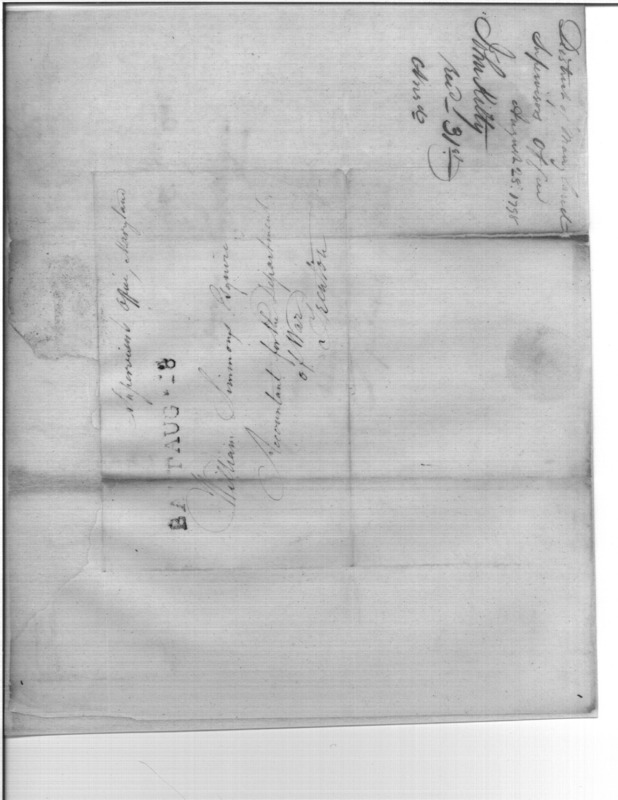 District of Maryland
Supervisors Office
August 28. 1798
John Kilty
recd 31st
Ansd
Supervisors Office, Maryland
BALT AUG 28
William Simmons Esquire
Accountant for the Department
of War
Trenton